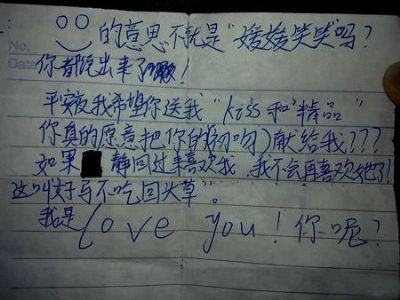 No.
Date
的意思不就是“媛媛笑笑”吗?
你都说出来了!
平安夜我希望你送我“kiss和“精品”
你真的愿意把你的初吻)献给我???
如果 静回过来喜欢我,我不会再喜欢她了!
这叫好马不吃回头草”。
我是Love you! 你呢?